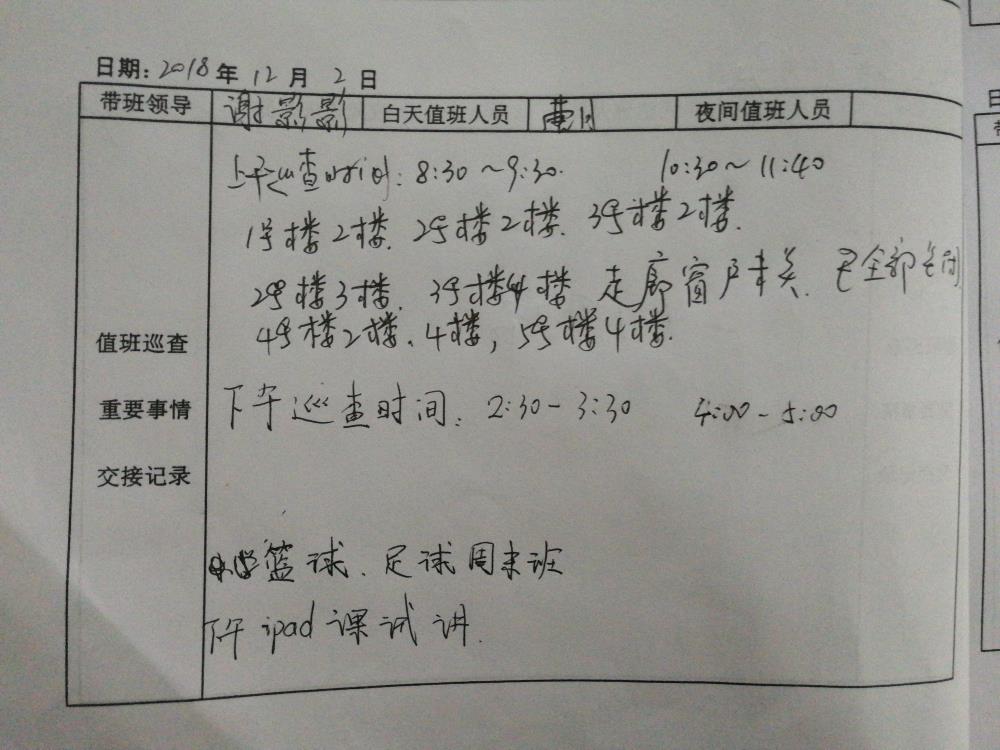 日期:2018年12月2日
带班领导 谢影影 白天值班人员 夜间值班人员
上午巡查时间:8:30~9:30. 10:30~11:40
1号楼2楼.2号楼2楼.3号楼2楼.
2号楼3楼.3号楼4楼 走廊窗户未关.已全部关闭
4号楼2楼、4楼,5号楼4楼.
值班巡查
重要事情
下午巡查时间:2:30-3:30 4:00-5:00
交接记录
小学篮球、足球周末班
下午ipad课试讲.